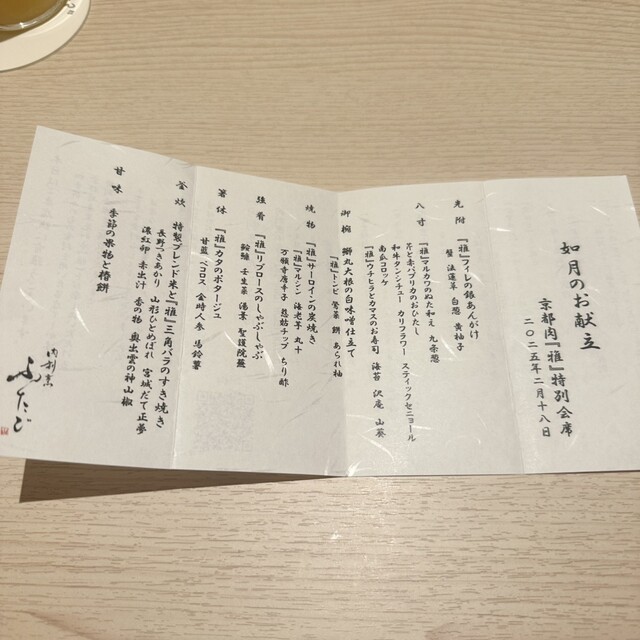 如月のお献立
京都肉『雅』特別会席
二〇二五年二月十八日
先附 『雅』フィレの銀あんがけ
蟹 法蓮草 白葱 黄柚子
八寸 『雅』マルカワのぬた和え 九条葱
芹と赤パプリカのおひたし
和牛タンシチュー カリフラワー スティックセニョール
南瓜コロッケ
『雅』ウチヒラとカマスのお寿司 海苔 沢庵 山葵
御椀 鰤丸大根の白味噌仕立て
『雅』トンビ 管菜 餅 あられ柚
焼物 『雅』サーロインの炭焼き
『雅』マルシン 海老芋 丸十
万願寺唐辛子 慈姑チップ ちり酢
強肴 『雅』リブロースのしゃぶしゃぶ
壬生菜 湯葉 聖護院蕪
箸休 『雅』カタのポタージュ
甘藍 ペコロス 金時人参 馬鈴薯
釜炊 特製ブレンド米と『雅』三角バラのすき焼き
長野つきあかり 山形ひとめぼれ 宮城だて正夢
濃紅卵 赤出汁 香の物 奥出雲の神山椒
甘味 季節の果物と椿餅
肉割烹
ふたご